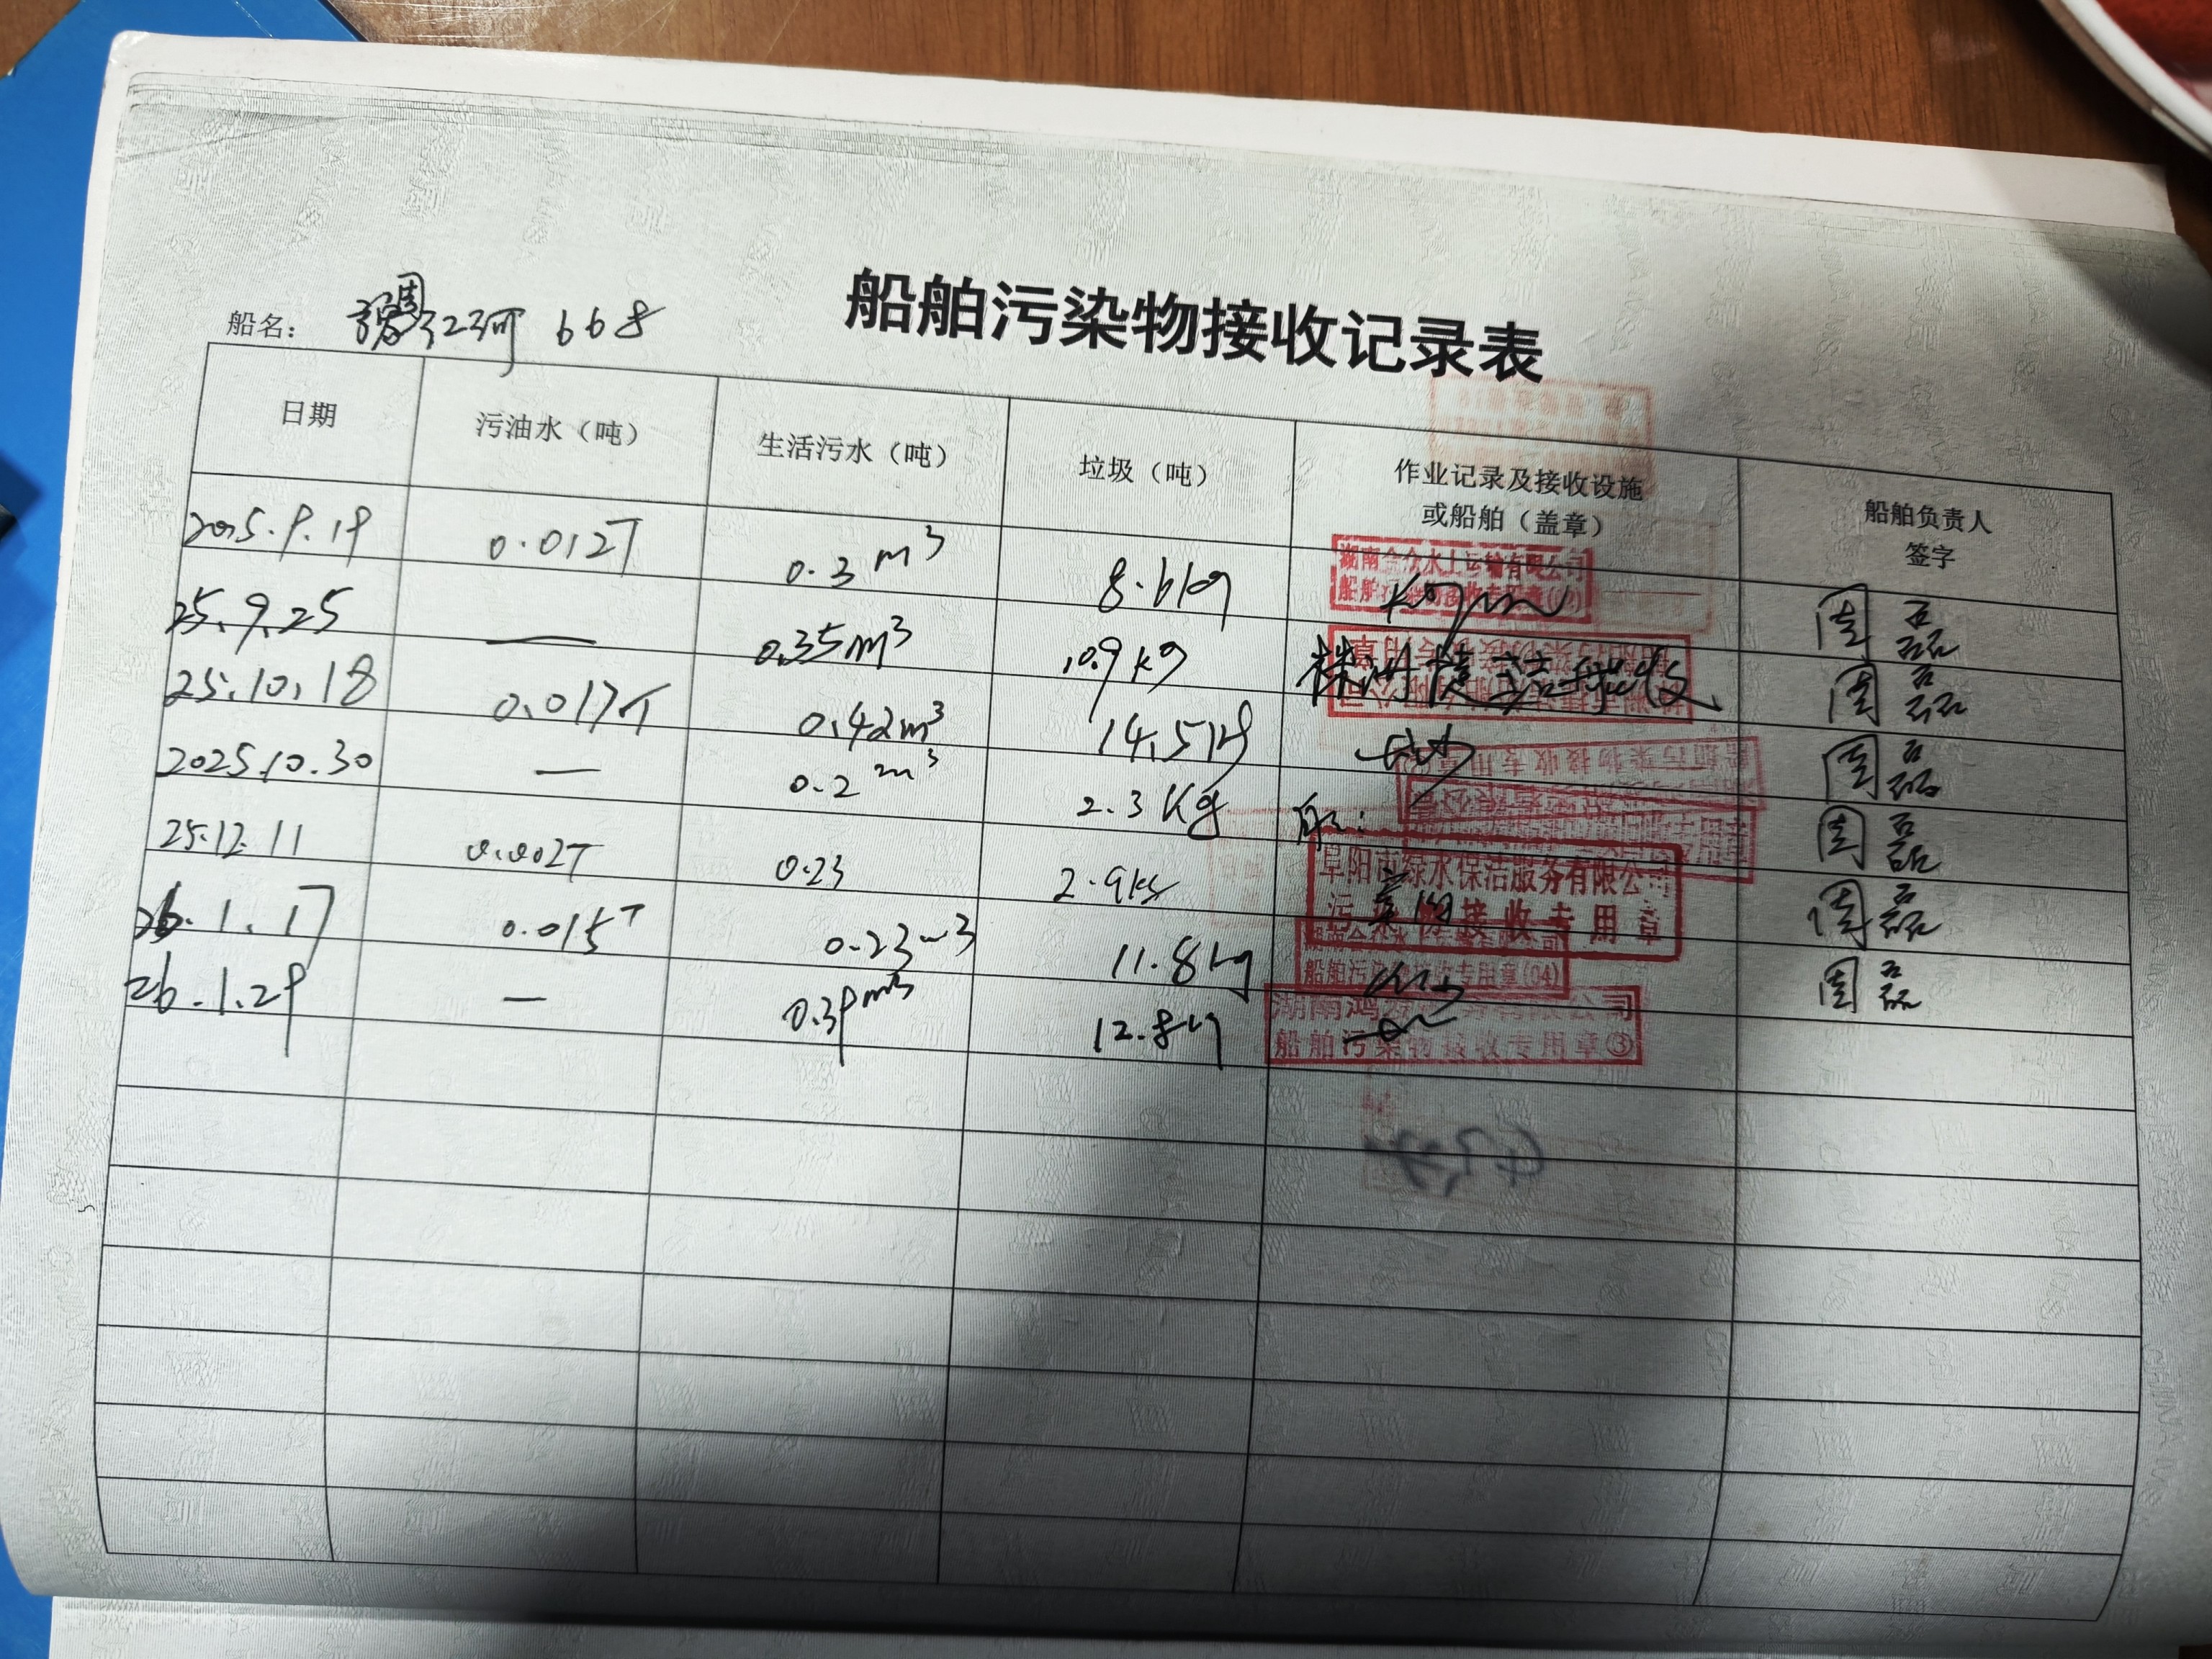 船舶污染物接收记录表
船名： 周口江河 668
日期 污油水（吨） 生活污水（吨） 垃圾（吨） 作业记录及接收设施或船舶（盖章） 船舶负责人签字
2025.9.19 0.012T 0.3 m³ 8.6kg 船舶 周磊
25.9.25 — 0.35m³ 10.9kg 株洲 洁接收 周磊
25.10.18 0.017T 0.42m³ 14.5kg 周磊
2025.10.30 — 0.2 m³ 2.3 Kg 周磊
25.12.11 0.002T 0.23 2.9kg 阜阳市绿水保洁服务有限公司 污染物接收专用章 周磊
26.1.17 0.015T 0.23m3 11.8kg 船舶污染物接收专用章(04) 周磊
26.1.29 — 0.39m³ 12.8kg 湖南鸿 有限公司 船舶污染物接收专用章③